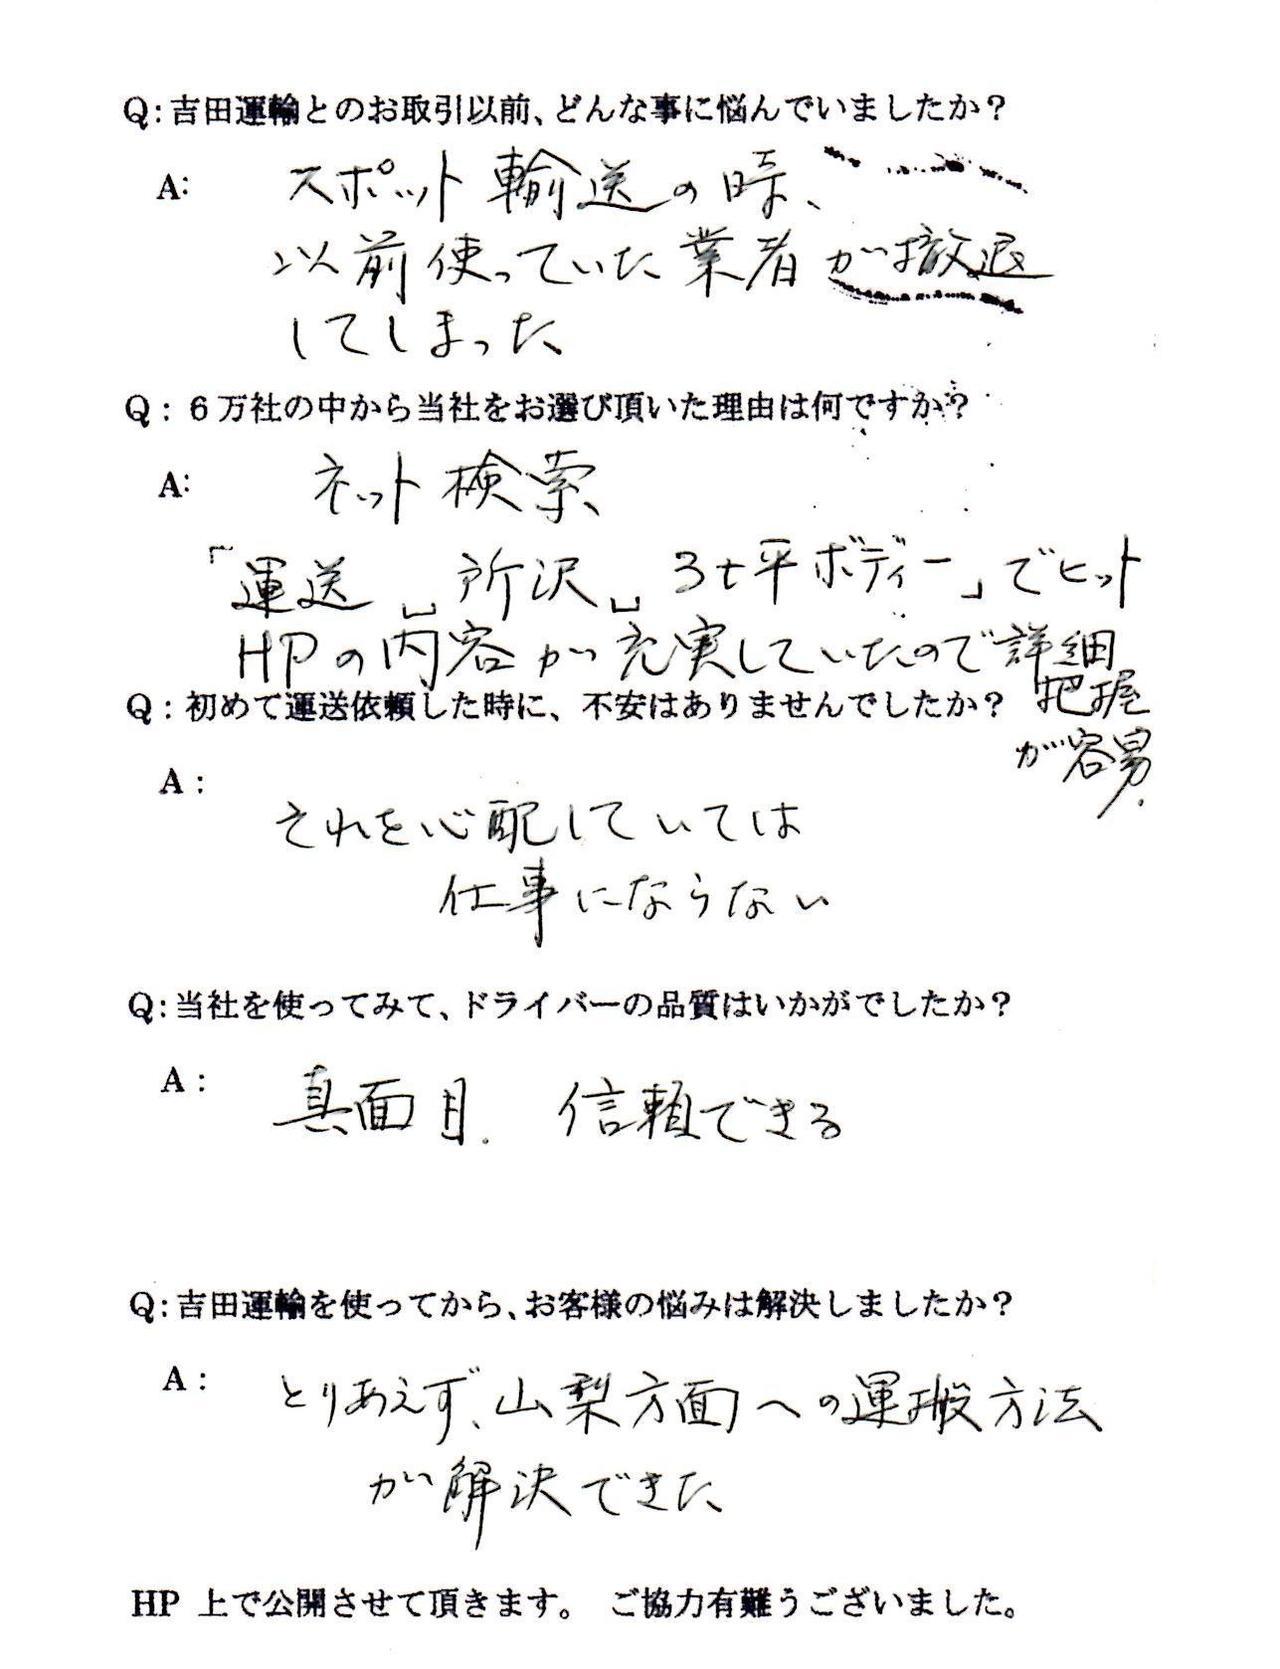 Q:吉田運輸とのお取引以前、どんな事に悩んでいましたか？
A: スポット輸送の時、
以前使っていた業者が撤退
してしまった
Q: 6万社の中から当社をお選び頂いた理由は何ですか？
A: ネット検索
「運送␣所沢␣3t平ボディー」でヒット
HPの内容が充実していたので詳細
把握
が容易.
Q: 初めて運送依頼した時に、不安はありませんでしたか？
A: それを心配していては
仕事にならない
Q:当社を使ってみて、ドライバーの品質はいかがでしたか？
A: 真面目. 信頼できる
Q:吉田運輸を使ってから、お客様の悩みは解決しましたか？
A: とりあえず、山梨方面への運搬方法
が解決できた
HP 上で公開させて頂きます。 ご協力有難うございました。